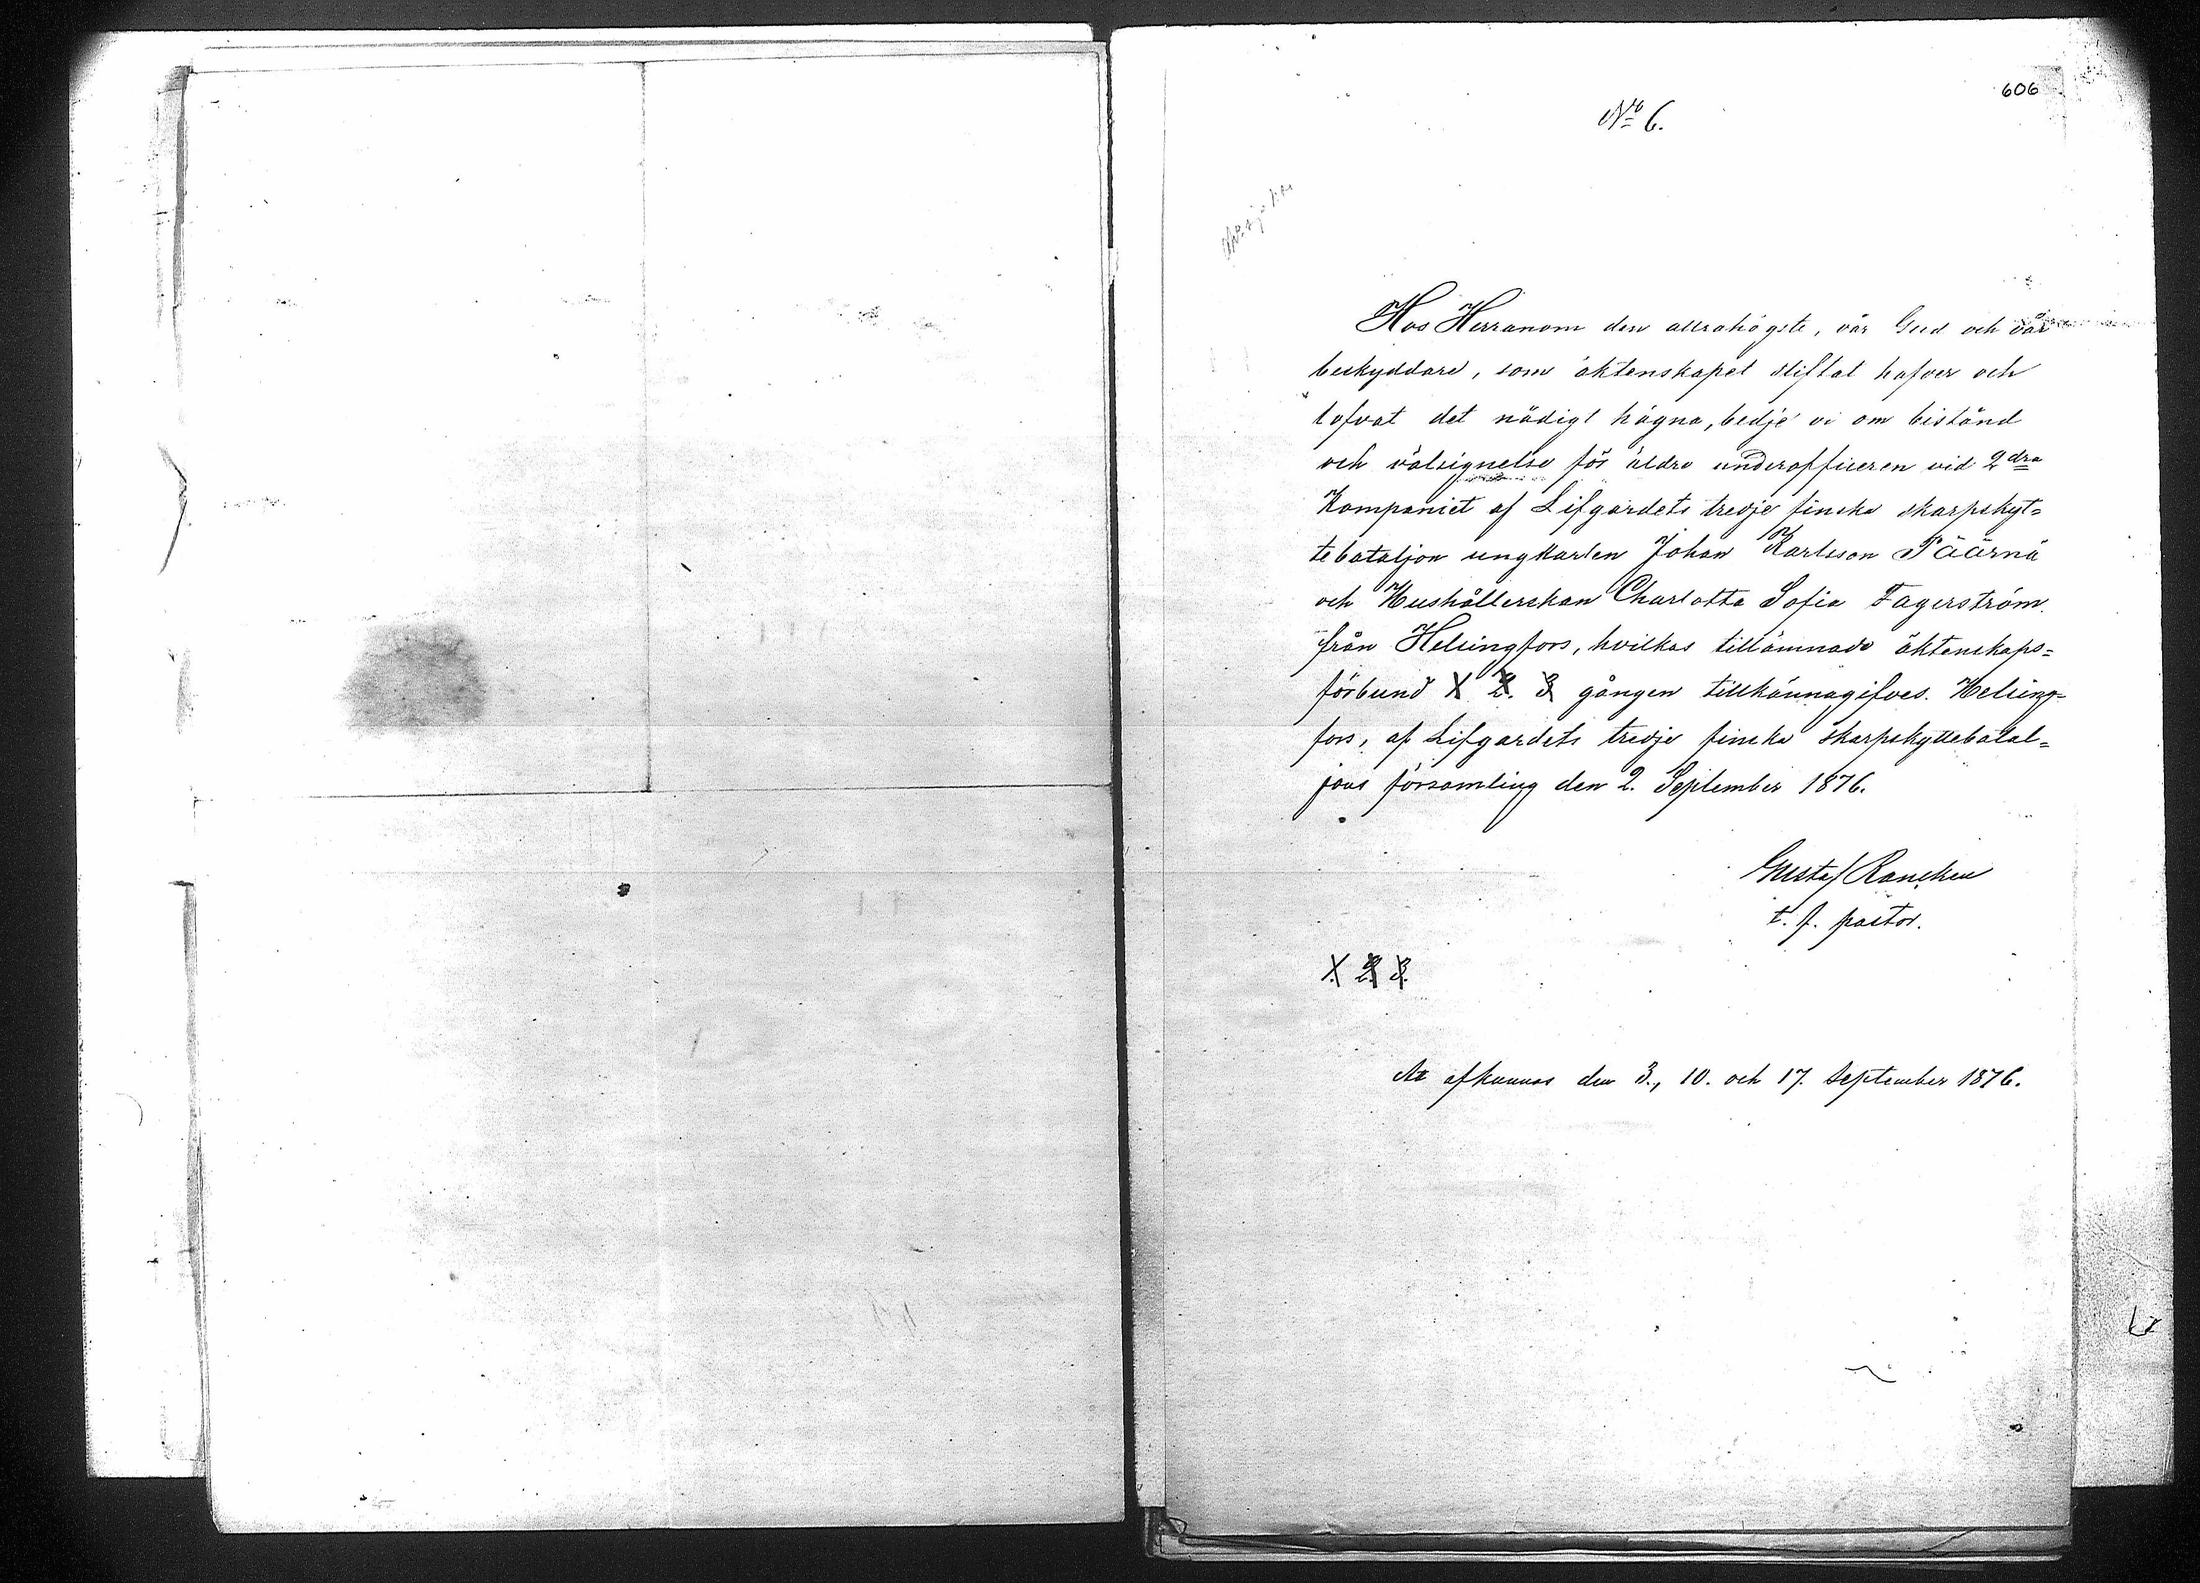 606
No 6.
Hos Herranom den allrahögste, vår Gud och vår
beskyddare, som äktenskapet stiftat hafver och
lofvat det nådigt hägna, bedje vi om bistånd
och välsignelse för äldre underofficeren vid 2dra
Kompaniet af Lifgardets tredje finska skarpskyt=
tebataljon ungkarlen Johan Karlsson Päärnä
och Hushållerskan Charlotta Sofia Fagerström
från Helsingfors, hvilkas tillämnade äktenskaps=
förbund 1 2. 3 gången tillkännagifves. Helsing=
fors, af Lifgardets tredje finska skarpskyttebatal=
jons församling den 2. September 1876.
Gustaf Rancken
t. f. pastor.
1. 2. 3.
At afkunnas den 3., 10. och 17. September 1876.